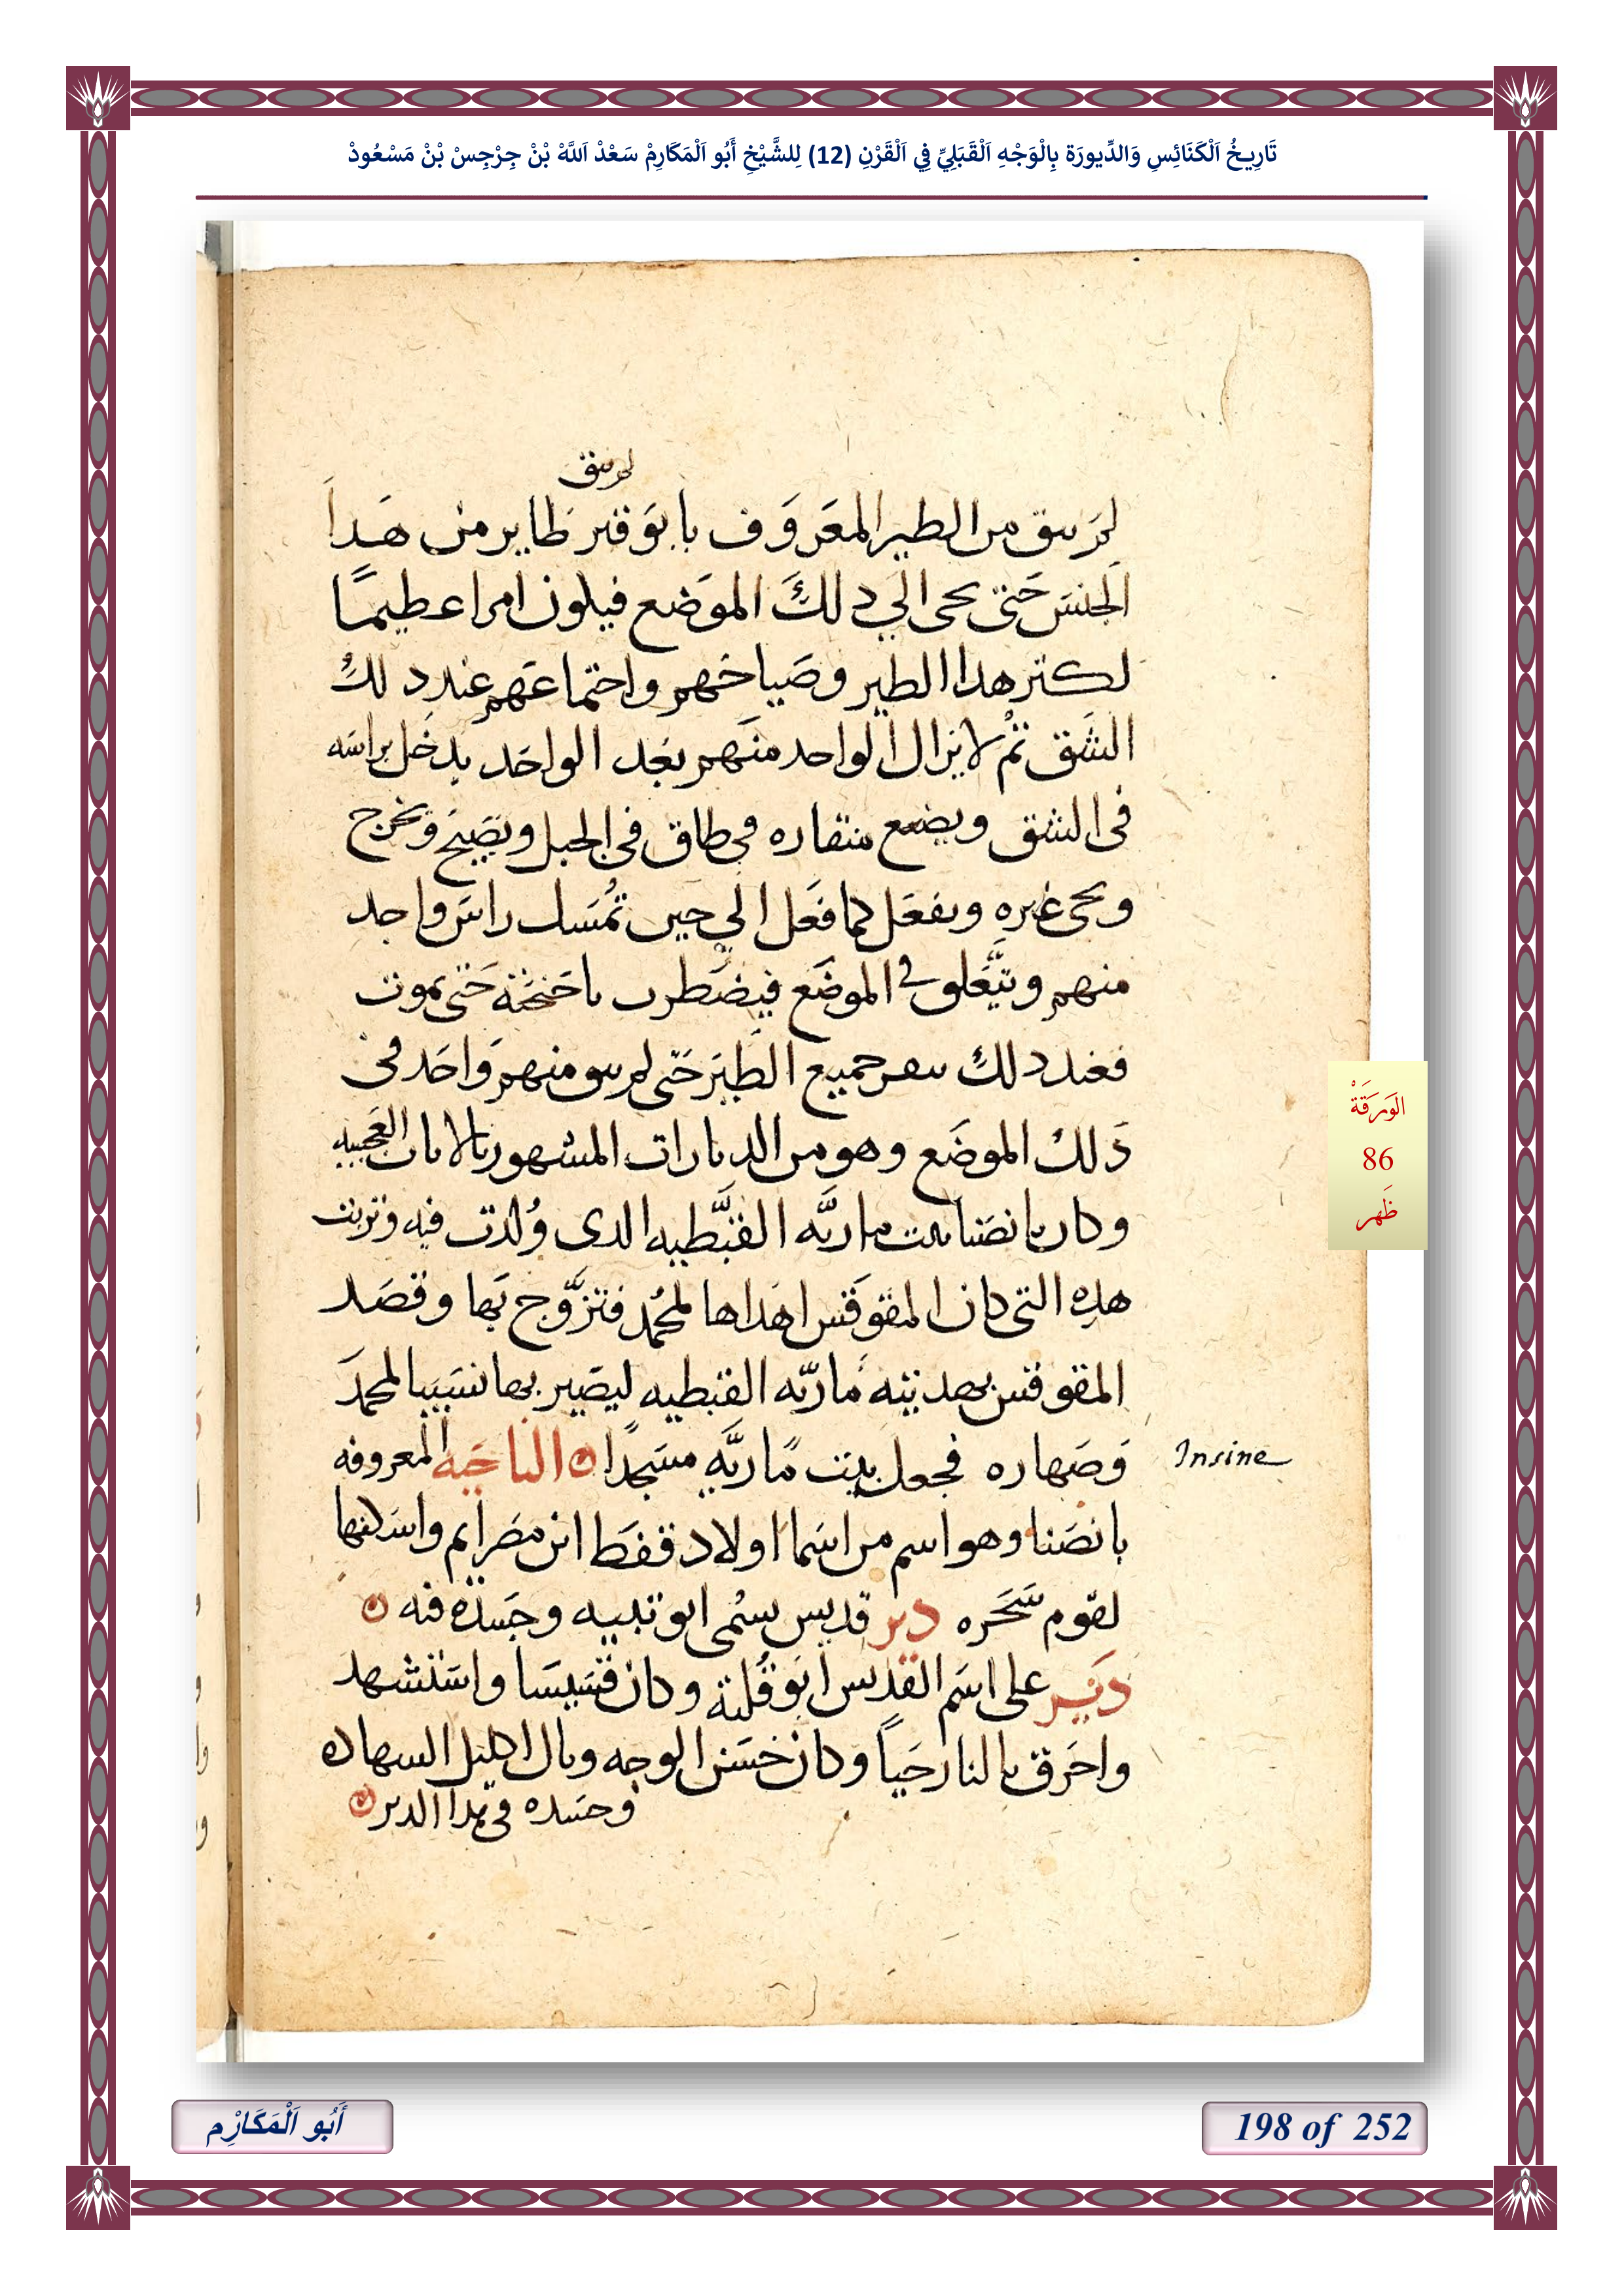 تَارِيخُ اَلْكَنَائِسِ وَالدِّيورَة بِالْوَجْهِ اَلْقَبَلِيِّ فِي اَلْقَرْنِ (12) لِلشَّيْخِ أَبُو اَلْمَكَارِمْ سَعْدْ اَللَّهْ بْنْ جِرْجِسْ بْنْ مَسْعُودْ
لم يبق
لم يبق من الطير المعَروَف بابوَقير طاير من هَداَ
الجنسَ حَتى يحى الي دلكَ الموَضع فيكون امرا عظيمًا
لكتر هدا الطير وصَياحهم واجتماعَهم عند دلكُ
الشَق تمْ لا يزال الواحد منَهم بعد الواحَد يدخَل براسَه
في الشق ويضع منقاره في طاق في الجبل ويَصَيح وَيخرج
ويحى غيره ويفعَل كما فعَل الي حين تمُسَك راسَ واحد
منهم ويتَعلق في الموضَع فيضَطرب باجَنحَته حَتى يموت
فعند دلك ينفر جميع الطيَر حَتى لم يبق منهم وَاحَد في
دَلكُ الموضَع وهو من الديارات المشهور بالايات العَجيبه
وكان بانصَنا بيت ماريَّه القبَطيه الدى وُلدت فيه وتربت
هدِه التي كان المقوقَس اهَداها لمحُمد فتزَوَّج بَها وقصَد
المقوقس بهديته ماريّه القبطيه ليصَير بها نسَيبا لمحمدَ
وَصَهاره فجعل بيت مَاريَّه مسَجدًا ۞ الناحَيه المعروفه
بانصَنا وهو اسم من اسَما اولاد قفطَ ابن مصَرايم واسَكنها
لقوم سَحَره دير قديس يسَمى ابو تبيه وجَسَده فيه ۞
دَيَر على اسَم القديس ابوَ قُلته وكان قسَيسَا واسَتشهد
واحَرق بالنار حَياً وكان حسَن الوجه ونال اكليل السهاده
وجسَده في هدا الدير ۞
Insine
الوَرَقَةْ
86
ظَهر
أَبُو اَلْمَكَارِْم
198 of 252